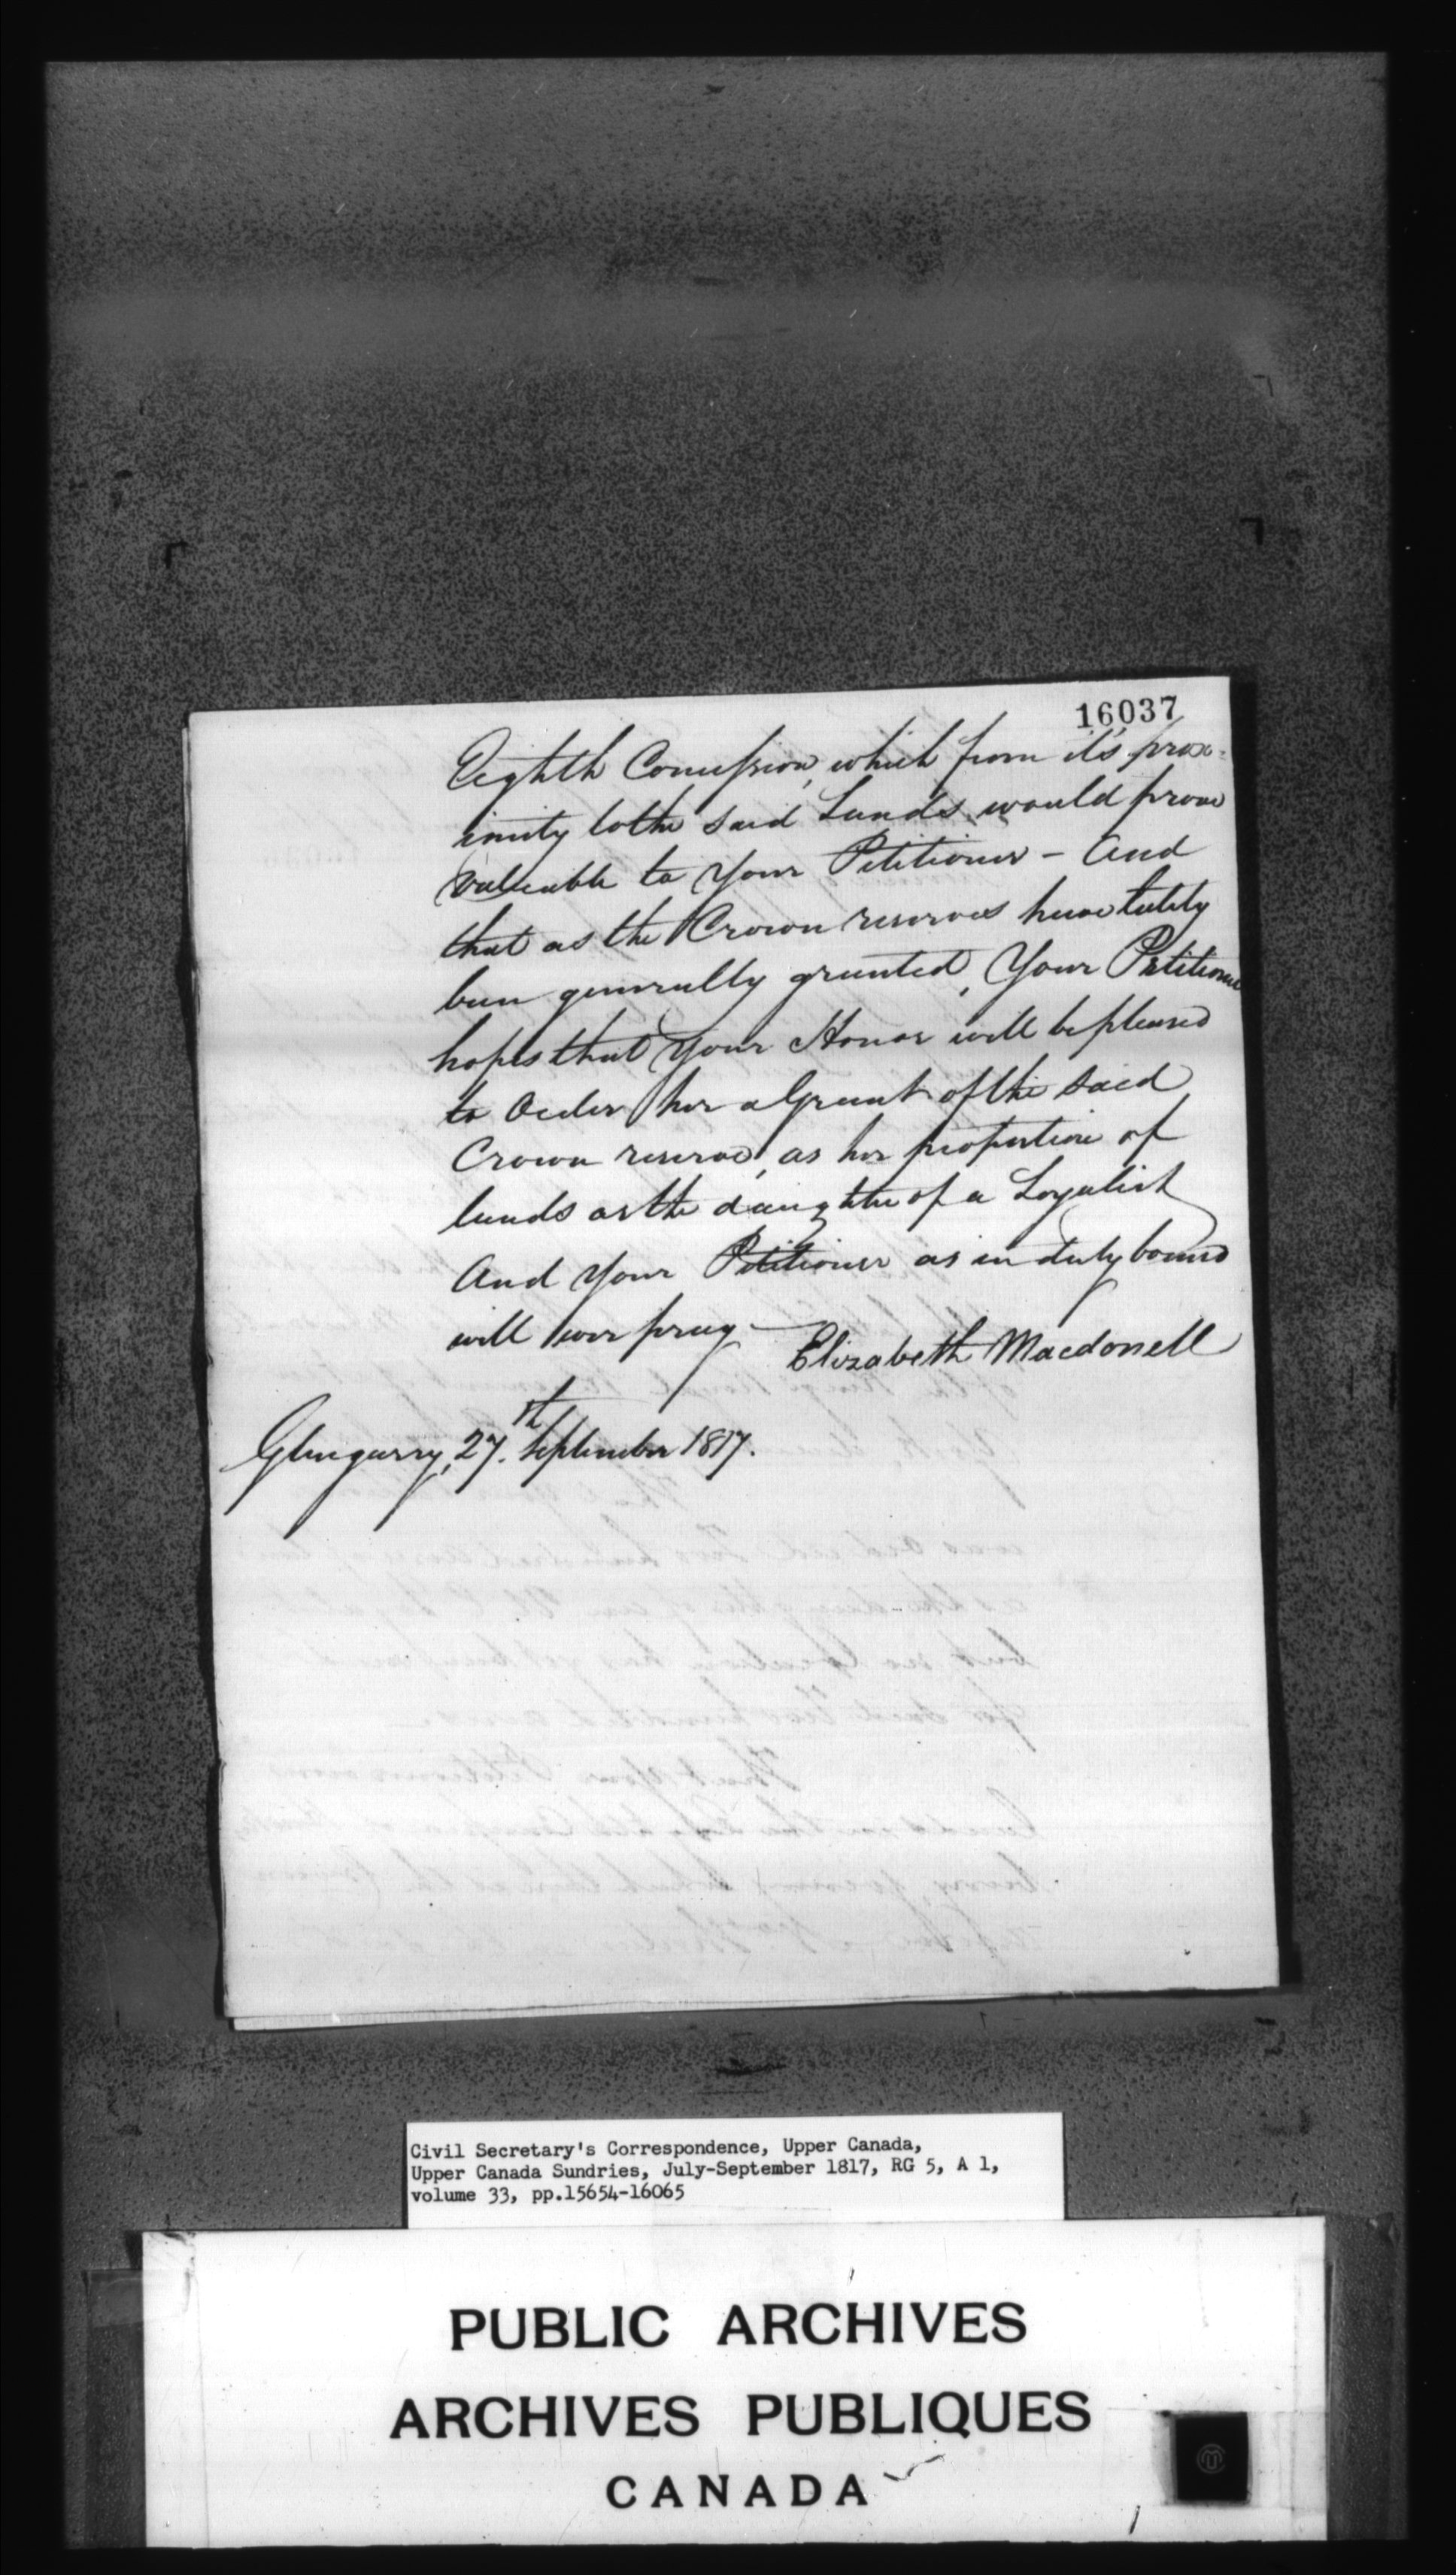 16037
Eighth Concession, which from it's prox-
imity to the said Lands would prove
Valuable to Your Petitioner - And
that as the Crown reserves have lately
been generally granted, Your Petitioner
hopes that Your Honor will be pleased
to Order her a Grant of the said
Crown reserve, as her proportion of
lands as the daughter of a Loyalist
And Your Petitioner as in duty bound
will ever pray —
Elizabeth Macdonell
Glengarry, 27th September 1817.
Civil Secretary's Correspondence, Upper Canada,
Upper Canada Sundries, July-September 1817, RG 5, A 1,
volume 33, pp.15654-16065
PUBLIC ARCHIVES
ARCHIVES PUBLIQUES
CANADA